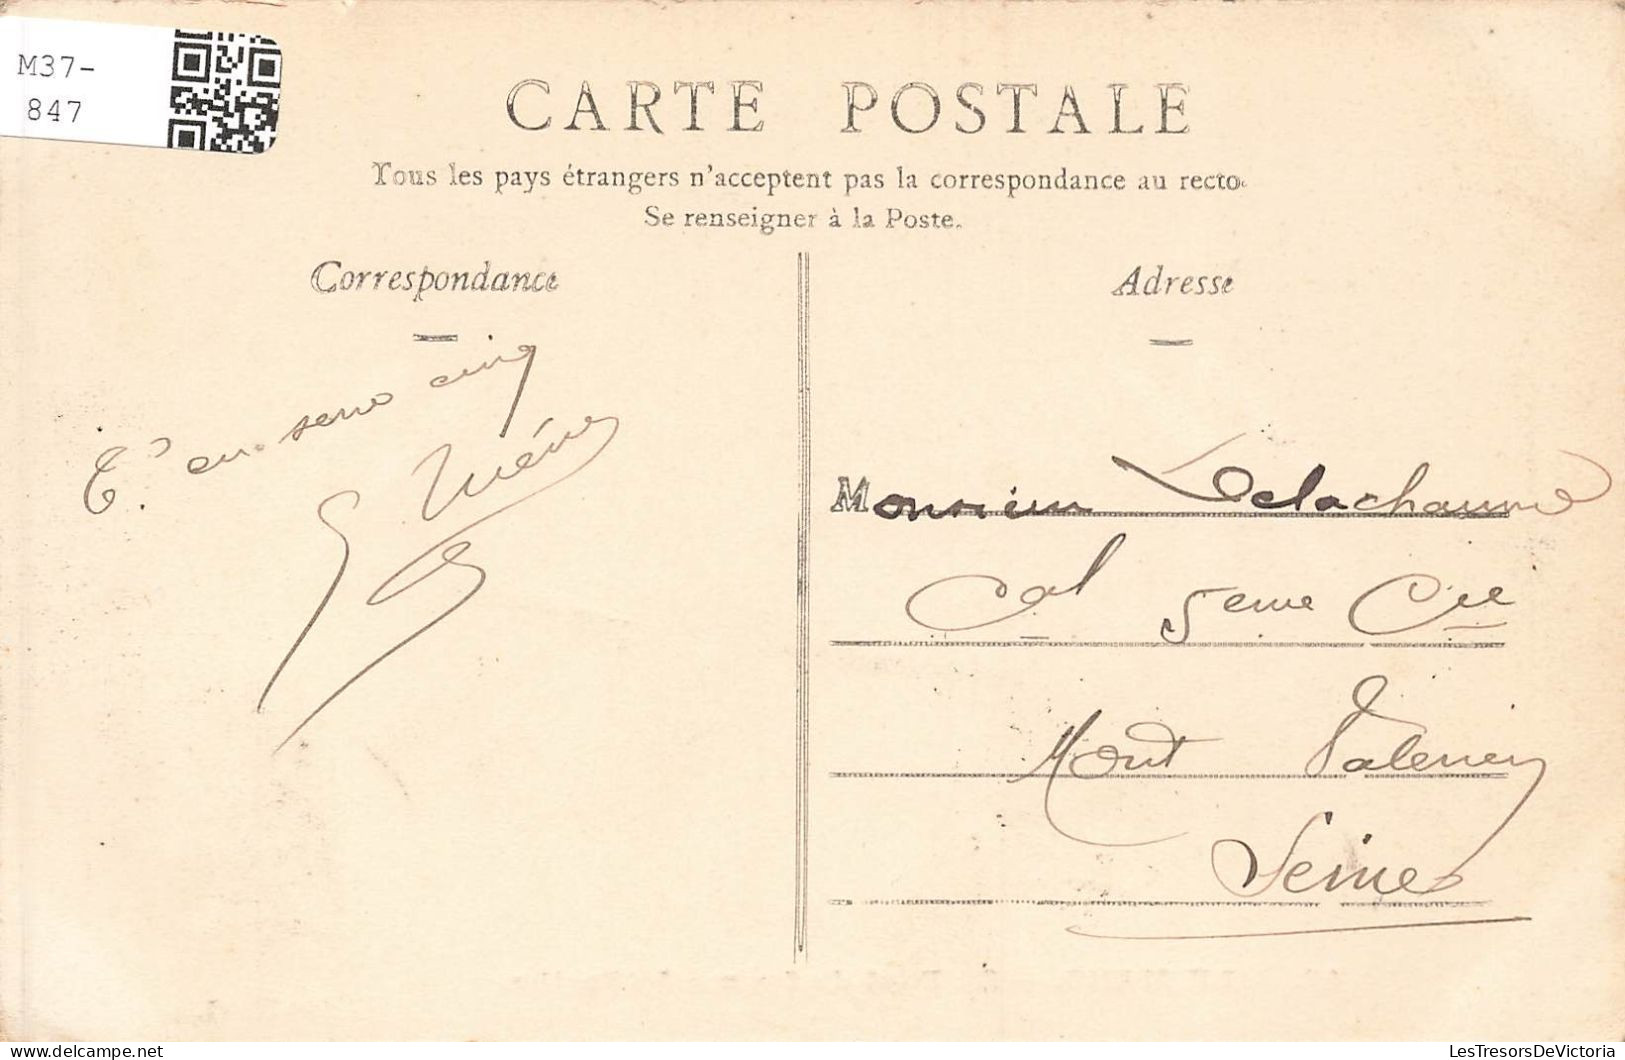 M37-
847
CARTE POSTALE
Tous les pays étrangers n'acceptent pas la correspondance au recto.
Se renseigner à la Poste.
Correspondance
Adresse
T'en serre cinq
Monsieur Delachaume
Cal 5eme Cie
Mont Valerien
Seine
LesTresorsDeVictoria